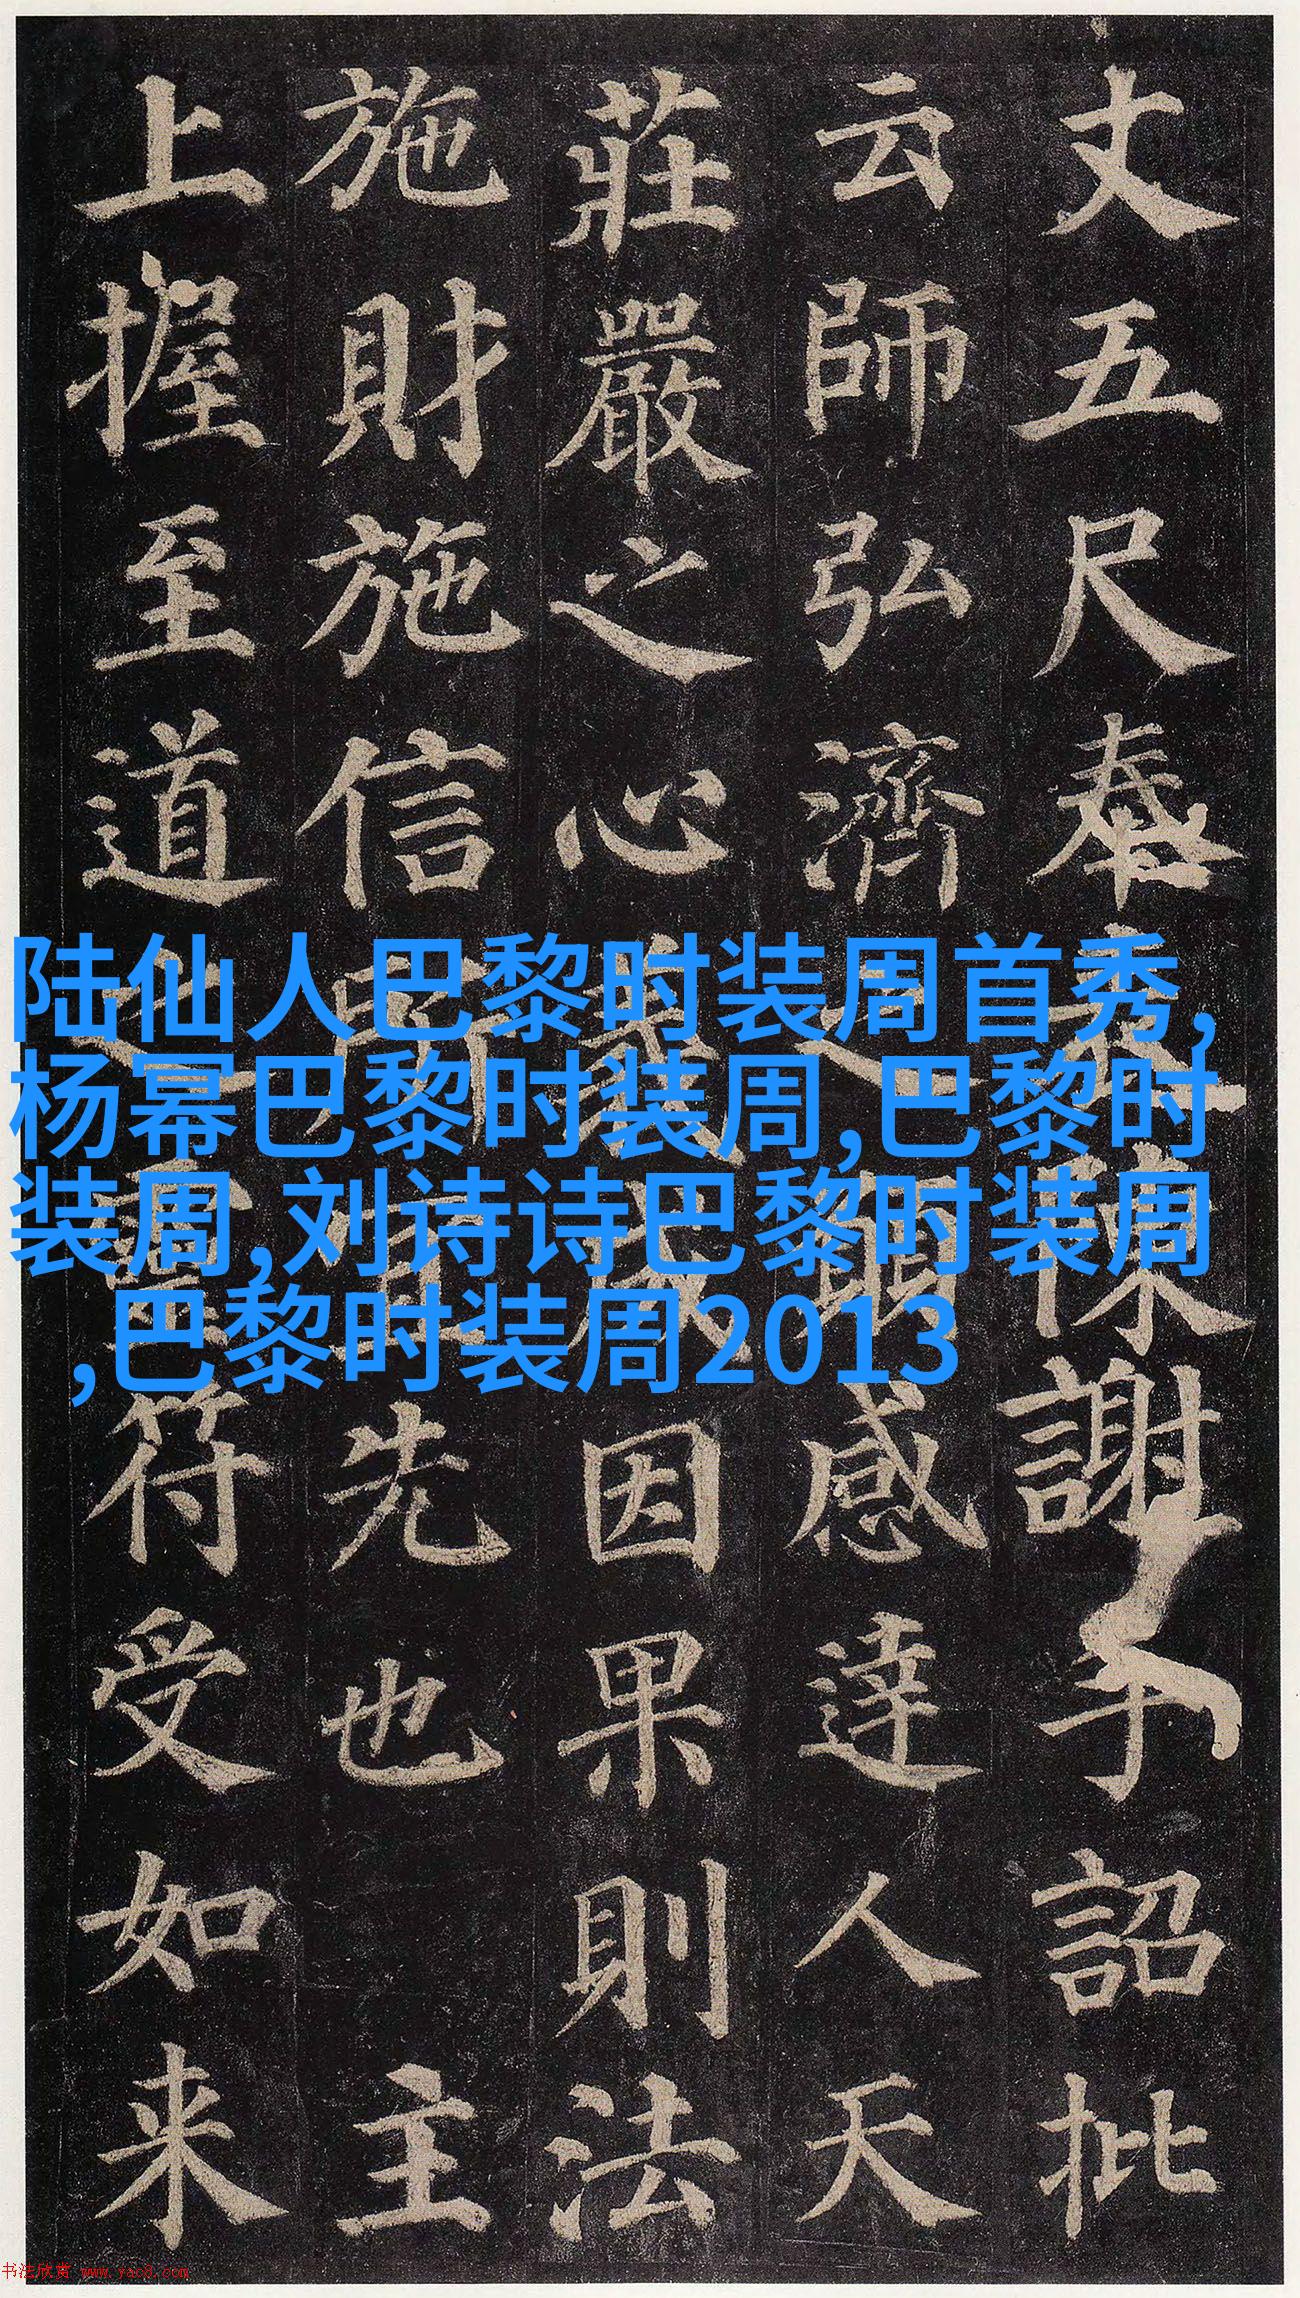 丈五尺奉表陳謝手詔批
云師弘濟之感達人天
莊嚴之心因果則法
施財施信所先也 主
上握至道之靈符受如来
陆仙人巴黎时装周首秀,
杨幂巴黎时装周,巴黎时
装周,刘诗诗巴黎时装周
,巴黎时装周2013
书法欣赏 www.yac8.com